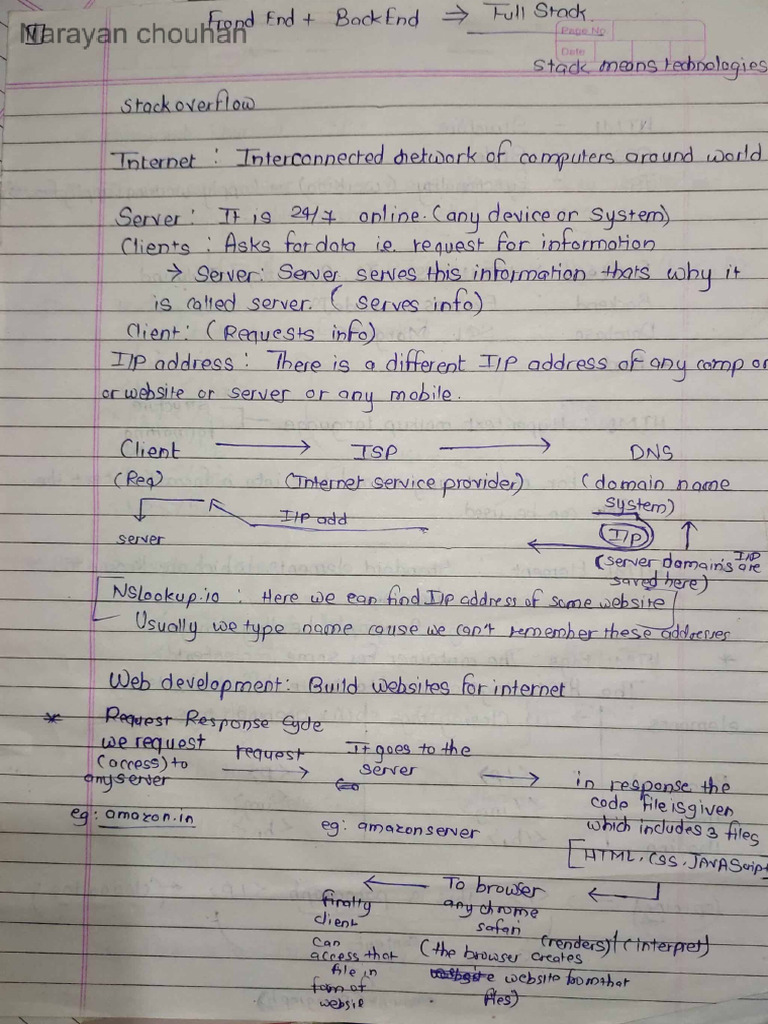 Frond End + BackEnd ⇒ Full Stack.
Narayan chouhan
Page No
Date
Stack means technologies
Stackoverflow
Internet : Interconnected network of computers around world
Server: It is 24/7 online. (any device or system)
Clients : Asks for data i.e. request for information
→ Server: Server serves this information thats why it
is called server. (serves info)
Client: (Requests info)
I/P address : There is a different I/P address of any comp or
or website or server or any mobile.
Client → ISP → DNS
(Req) (Internet service provider) (domain name
system)
I/P add
server
(I/P)
(server domain's I/P are
saved here)
Nslookup.io : Here we can find I/p address of some website
Usually we type name cause we can't remember these addresses
Web development: Build websites for internet
* Request Response Cycle
we request
(access) to
any server
request →
It goes to the
server
↔
in response the
code file is given
which includes 3 files
[HTML, CSS, JAVAScript
eg: amazon.in
eg: amazon server
← To browser ←
any chrome
safari
(renders) / (interpret)
(the browser creates
website from that
files)
finally
client
can
access that
file in
form of
websie